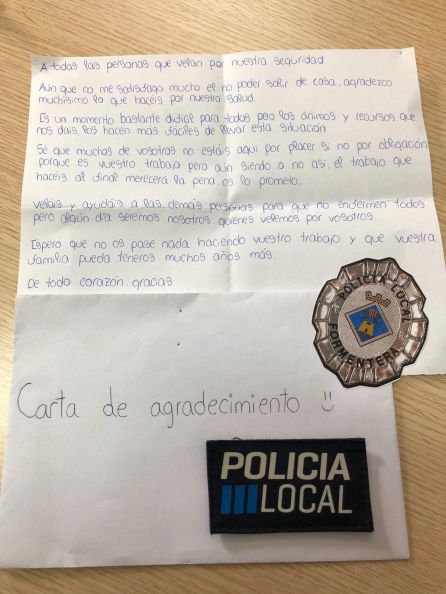 A todas las personas que velan por nuestra seguridad
Aún que no me satisfaga mucho el no poder salir de casa, agradezco
muchísimo lo que hacéis por nuestra salud.
Es un momento bastante difícil para todos pero los ánimos y recursos que
nos dais, los hacen más fáciles de llevar esta situación
Sé que muchos de vosotros no estáis aquí por placer si no por obligación
porque es vuestro trabajo pero aún siendo o no así, el trabajo que
hacéis al final merecerá la pena os lo prometo.
Veláis y ayudáis a las demás personas para que no enfermen todos
pero algún día seremos nosotros quienes velemos por vosotros.
Espero que no os pase nada haciendo vuestro trabajo y que vuestra
familia pueda teneros muchos años más.
De todo corazón, gracias
POLICIA LOCAL
FORMENTERA
Carta de agradecimiento :)
POLICIA
LOCAL